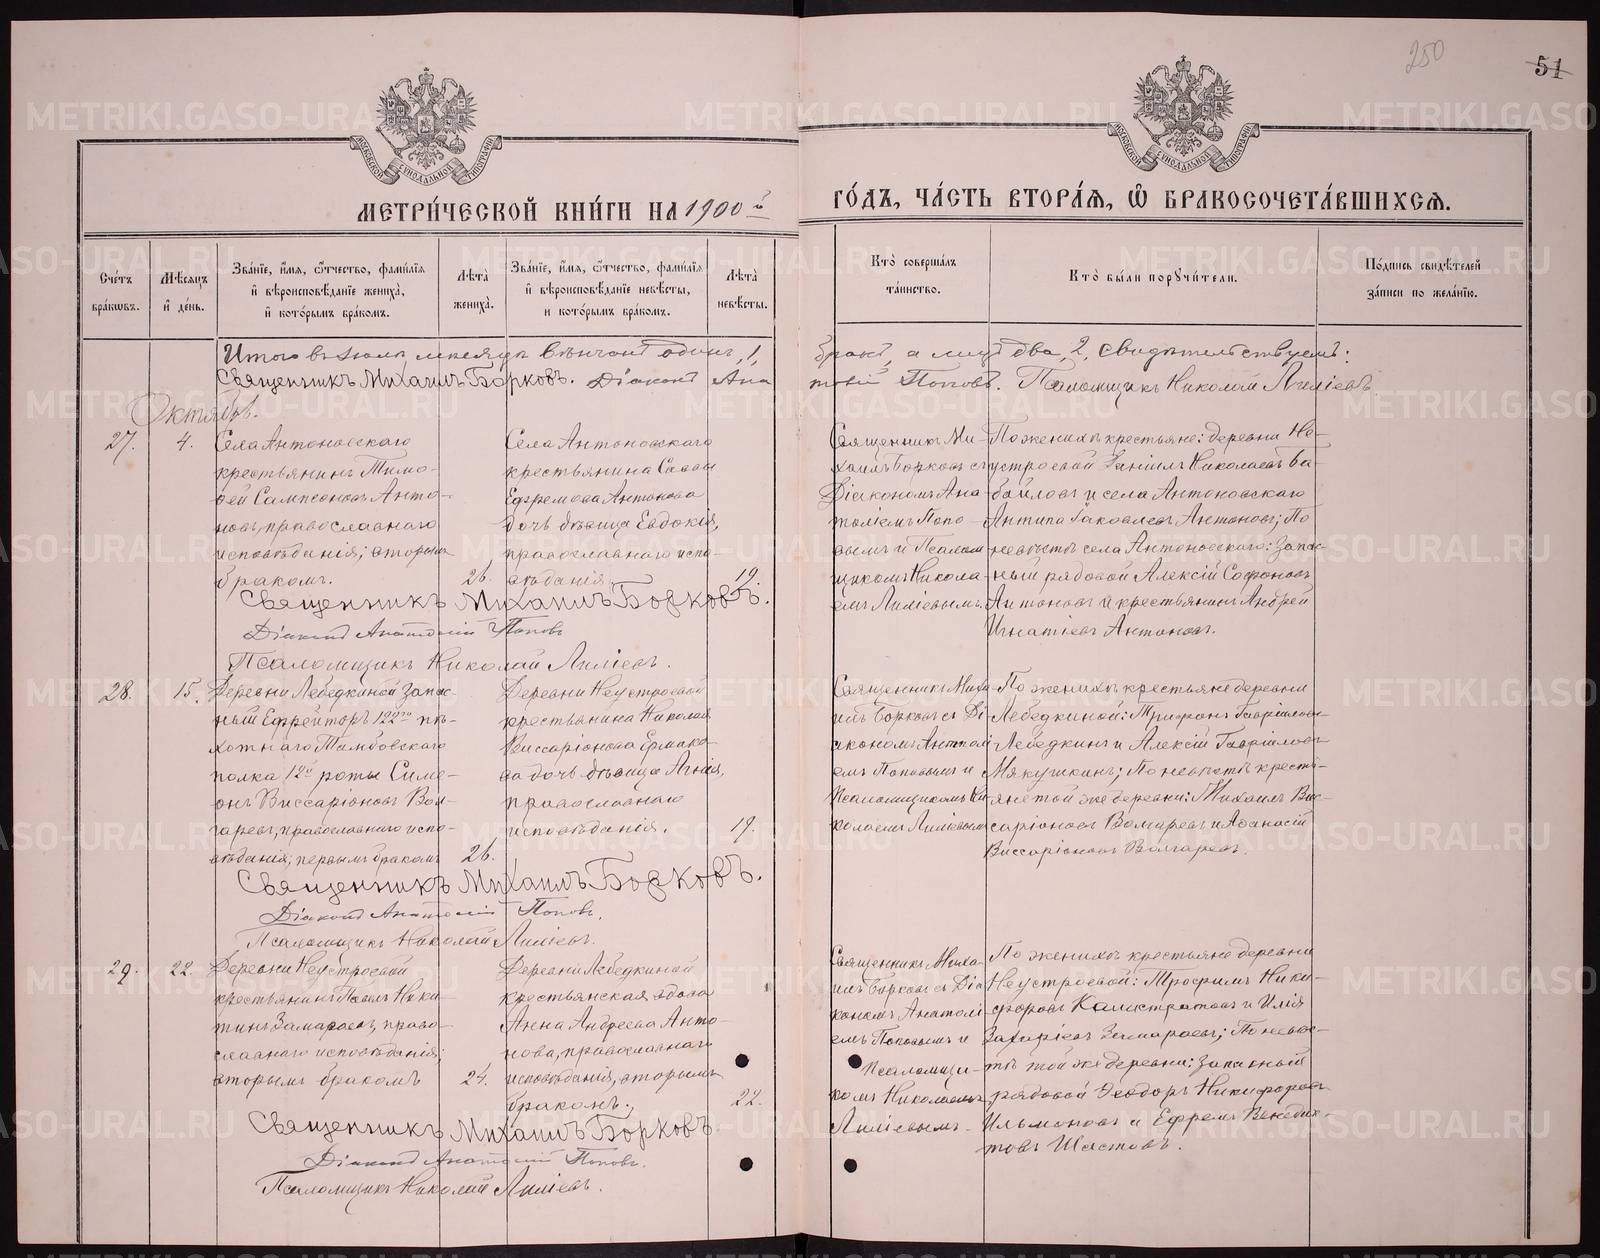 250
51
МЕТРИ́ЧЕСКОЙ КНИ́ГИ НА 1900й
ГО́ДЪ, ЧА́СТЬ ВТОРА́Я, Ѡ БРАКОСОЧЕТА́ВШИХСЯ.
Сче́тъ бра́ковъ.
Мѣ́сяцъ и де́нь.
Зва́нїе, и́мя, о́тчество, фами́лїя и вѣроисповѣ́данїе жениха̀, и кото́рымъ бра́комъ.
Лѣ́та жениха̀.
Зва́нїе, и́мя, о́тчество, фами́лїя и вѣроисповѣ́данїе невѣ́сты, и кото́рымъ бра́комъ.
Лѣ́та невѣ́сты.
Кто̀ соверша́лъ та́инство.
Кто̀ бы́ли поручи́тели.
По́дпись свидѣ́телей за́писи по жела́нїю.
Итого въ Іюлѣ мѣсяцѣ вѣнчанъ одинъ, 1, бракъ, а лицъ два, 2, свидѣтельствуемъ:
Священникъ Михаилъ Борковъ. Діаконъ Анатолій Поповъ. Псаломщикъ Николай Лиліевъ
Октябрь.
27.
4.
Села Антоновскаго
крестьянинъ Тимо-
ѳей Сампсоновъ Анто-
новъ, православнаго
исповѣданія; вторымъ
бракомъ.
26.
Села Антоновскаго
крестьянина Саввы
Ефремова Антонова
дочь дѣвица Евдокія,
православнаго испо-
вѣданія.
19.
Священникъ Ми-
хаилъ Борковъ съ
Діакономъ Ана-
толіемъ Попо-
вымъ и Псалом
щикомъ Никола-
емъ Лиліевымъ.
По женихѣ крестьяне: деревни Не-
устроевой Даніилъ Николаевъ Ва-
байловъ и села Антоновскаго
Антипа Іаковлевъ Антоновъ; По
невѣстѣ села Антоновскаго: Запас-
ный рядовой Алексій Софоновъ
Антоновъ и крестьянинъ Андрей
Игнатіевъ Антоновъ.
Священникъ Михаилъ Борковъ.
Діаконъ Анатолій Поповъ
Псаломщикъ Николай Лиліевъ.
28.
15.
Деревни Лебедкиной Запас-
ный Ефрейторъ 122го пѣ-
хотнаго Тамбовскаго
полка 12й роты Симе-
онъ Виссаріоновъ Вол-
гаревъ, православнаго испо-
вѣданія; первымъ бракомъ
26.
Деревни Неустроевой
крестьянина Николая
Виссаріонова Ермако-
ва дочь дѣвица Агнія,
православнаго
исповѣданія.
19.
Священникъ Миха
илъ Борковъ съ Ді
акономъ Анатолі
емъ Поповымъ и
Псаломщикомъ Ни
колаемъ Лиліевымъ
По женихѣ крестьяне деревни
Лебедкиной: Трифонъ Гавріиловъ
Лебедкинъ и Алексій Гавріиловъ
Мякушкинъ; По невѣстѣ кресть-
яне той же деревни: Михаилъ Вис-
саріоновъ Волгаревъ и Аѳанасій
Виссаріоновъ Волгаревъ.
Священникъ Михаилъ Борковъ.
Діаконъ Анатолій Поповъ.
Псаломщикъ Николай Лиліевъ.
29.
22.
Деревни Неустроевой
крестьянинъ Павелъ Ники
тинъ Замараевъ, право-
славнаго исповѣданія;
вторымъ бракомъ
24.
Деревни Лебедкиной
крестьянская вдова
Анна Андреева Анто-
нова, православнаго
исповѣданія, вторымъ
бракомъ.
22.
Священникъ Миха
илъ Борковъ съ Діа
кономъ Анатолі
емъ Поповымъ и
Псаломщи-
комъ Николаемъ
Лиліевымъ.
По женихѣ крестьяне деревни
Неустроевой: Трофимъ Ники-
форовъ Калистратовъ и Илія
Захаріевъ Замараевъ; По невѣс-
тѣ той же деревни: Запасный
рядовой Ѳеодоръ Никифоровъ
Ильмоновъ и Ефремъ Венедик-
товъ Шастовъ.
Священникъ Михаилъ Борковъ.
Діаконъ Анатолій Поповъ.
Псаломщикъ Николай Лиліевъ.
METRIKI.GASO-URAL.RU